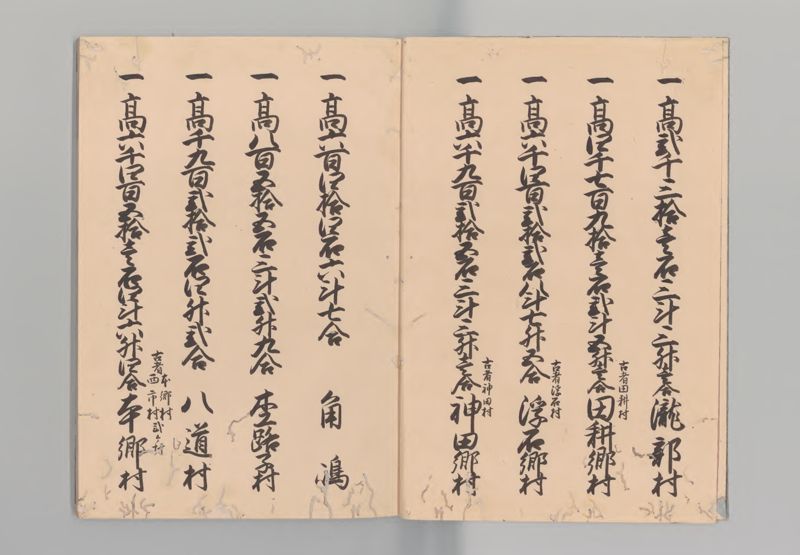 一高弐千三拾壱石三斗三升壱合瀧部村
古者田耕村
一高四千七百九拾壱石弐斗五升壱合田耕郷村
古者浮石村
一高六千四百弐拾弐石八斗七升五合浮石郷村
古者神田村
一高六千九百弐拾五石三斗三升壱合神田郷村
一高六百四拾四石六斗七合 角嶋
一高八百五拾五石三斗弐升九合
一高千九百弐拾弐石四升弐合 八道村
古者本郷村
西市村弐ケ村
一高六千四百五拾壱石四斗六升四合本郷村